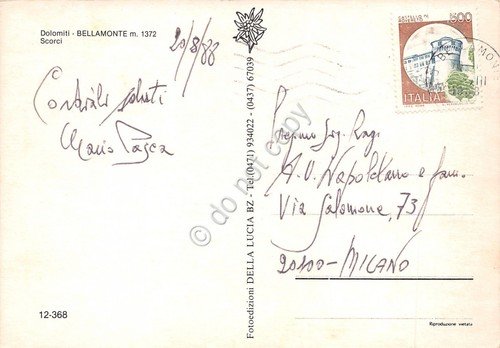 Dolomiti - BELLAMONTE m. 1372
Scorci
20/8/88
Cordiali saluti
Mario
12-368
Fotoedizioni DELLA LUCIA BZ - Tel. (0471) 934022 - (0437) 67039
do not copy
500
ITALIA
Sig. Rag.
A. V. Napoletano e fam.
Via Salomone, 73
20100 - MILANO
Riproduzione vietata